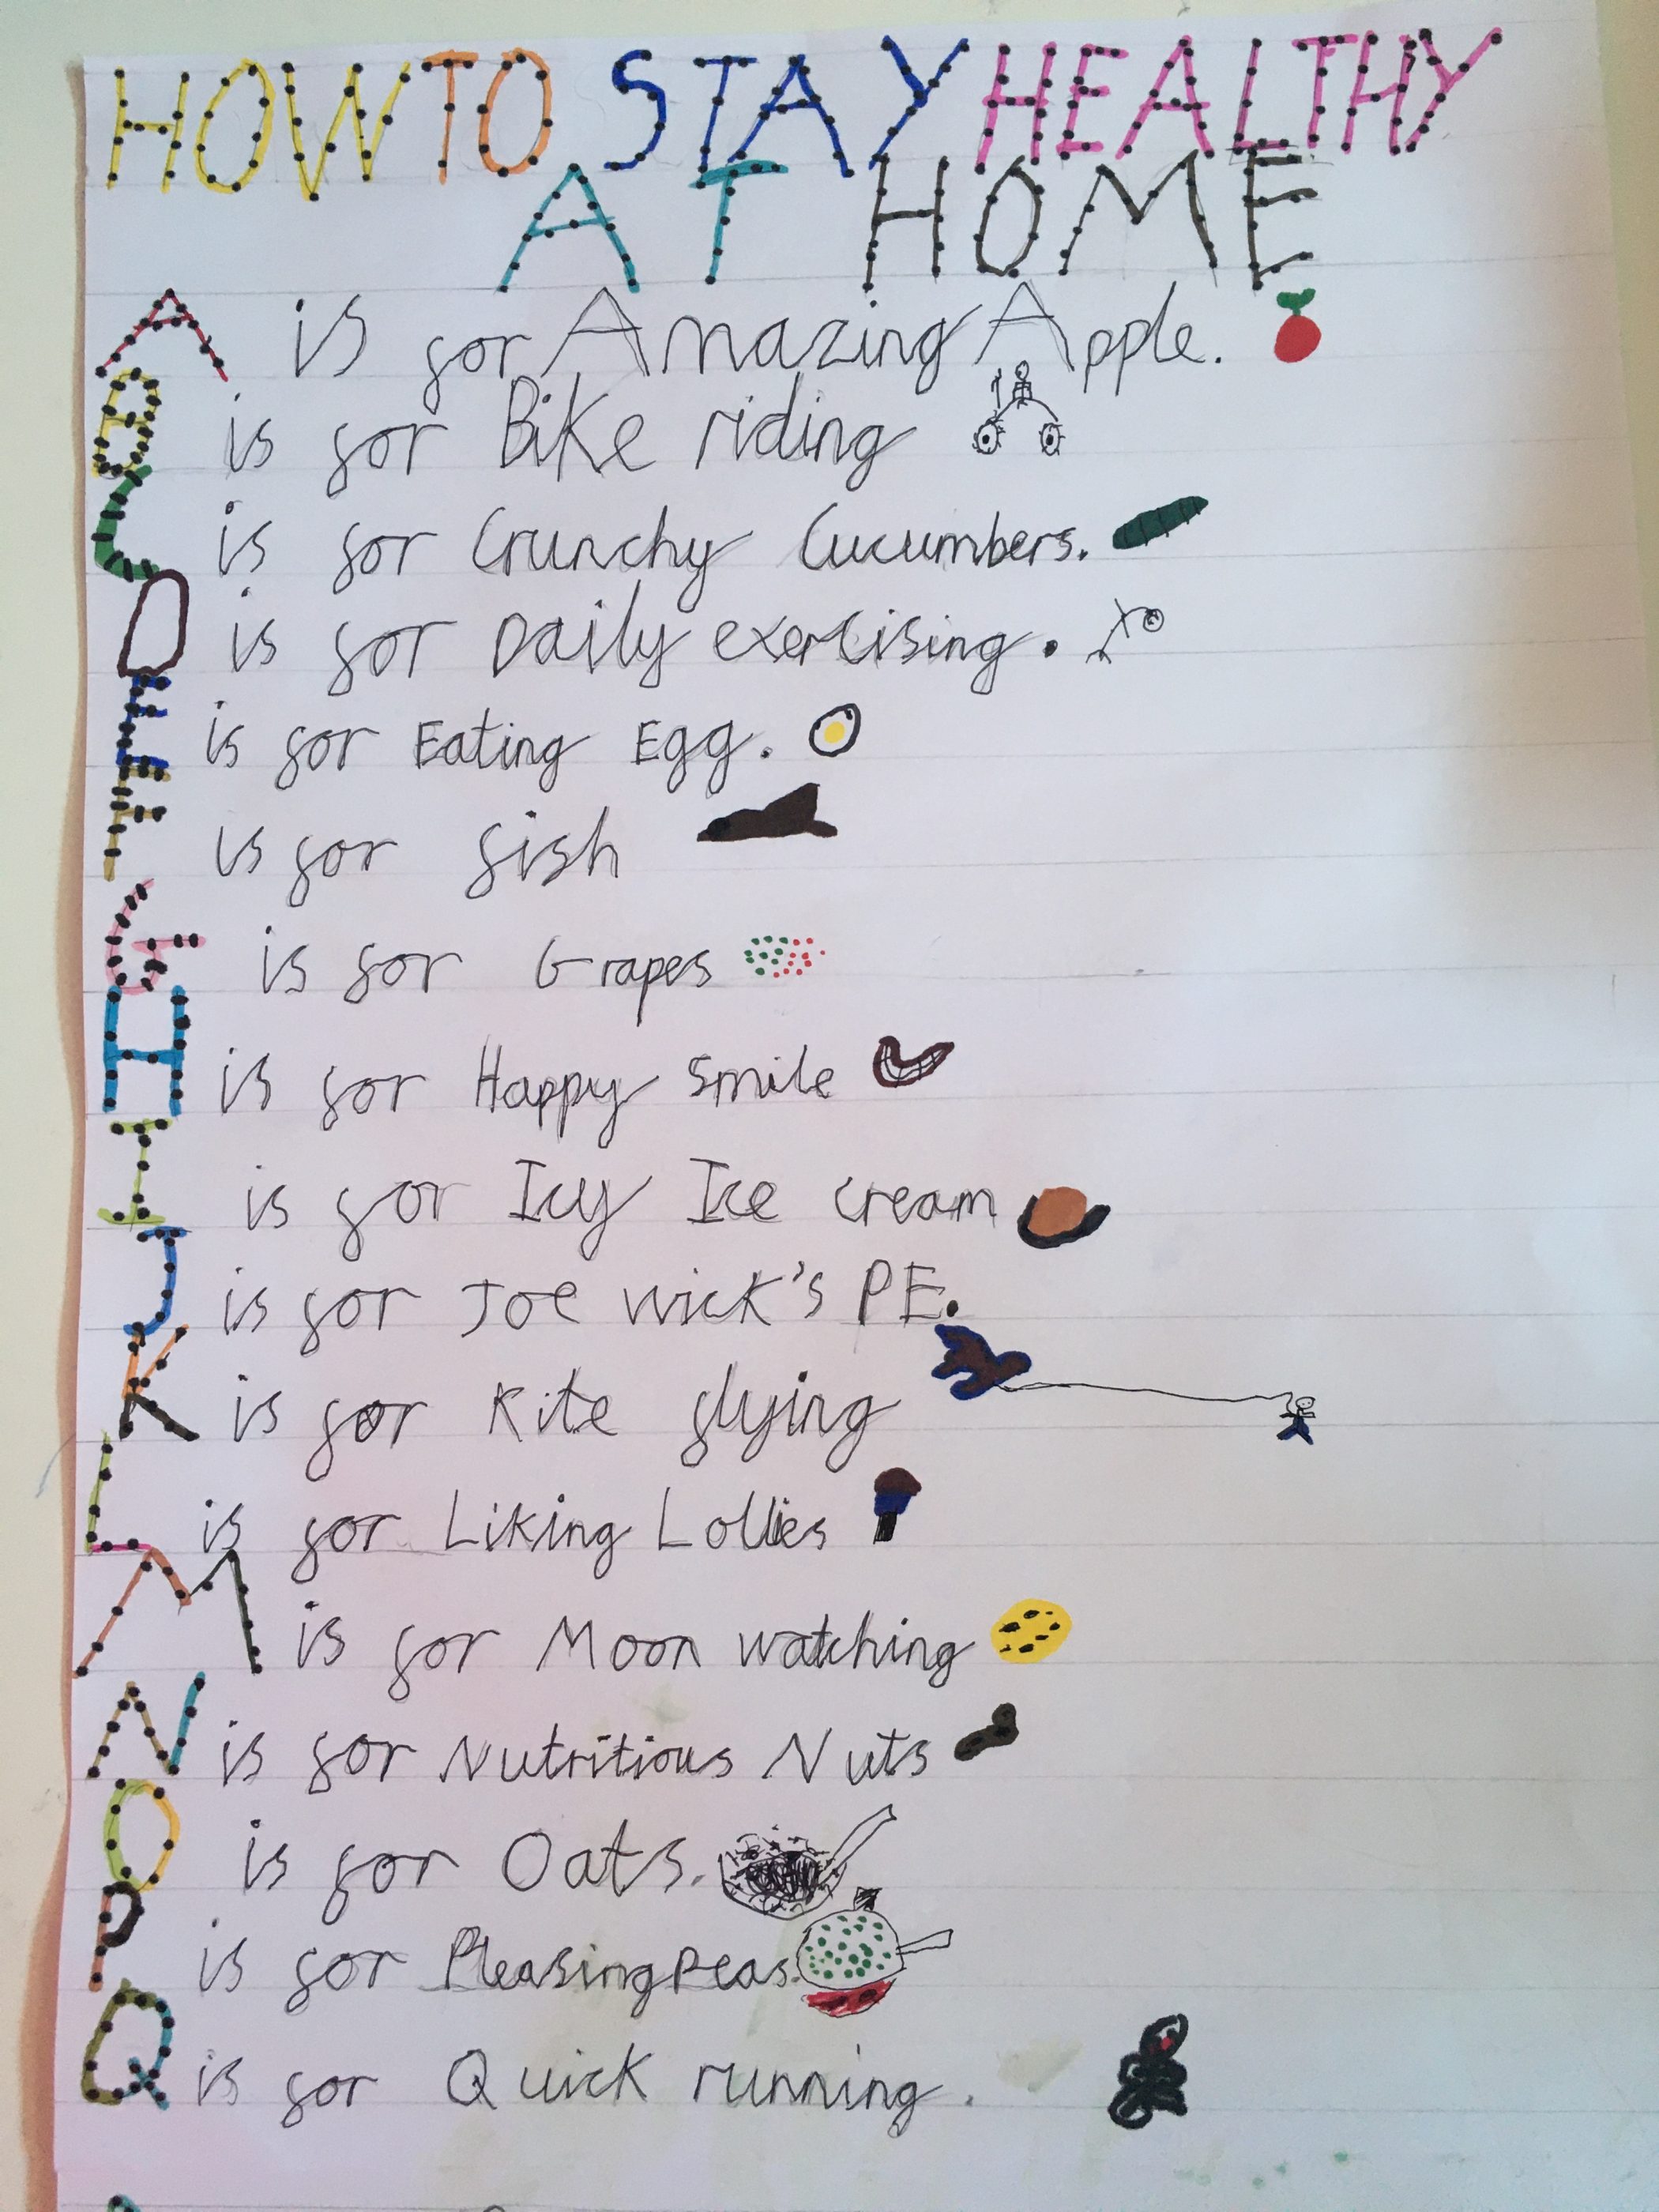 HOW TO STAY HEALTHY
AT HOME
A is for Amazing Apple.
B is for Bike riding
C is for Crunchy Cucumbers.
D is for Daily exercising.
E is for Eating Egg.
F is for fish
G is for Grapes
H is for Happy Smile
I is for Icy Ice cream
J is for Joe wick's PE.
K is for Kite flying
L is for Liking Lollies
M is for Moon watching
N is for Nutritious Nuts
O is for Oats.
P is for Pleasing Peas.
Q is for Quick running.